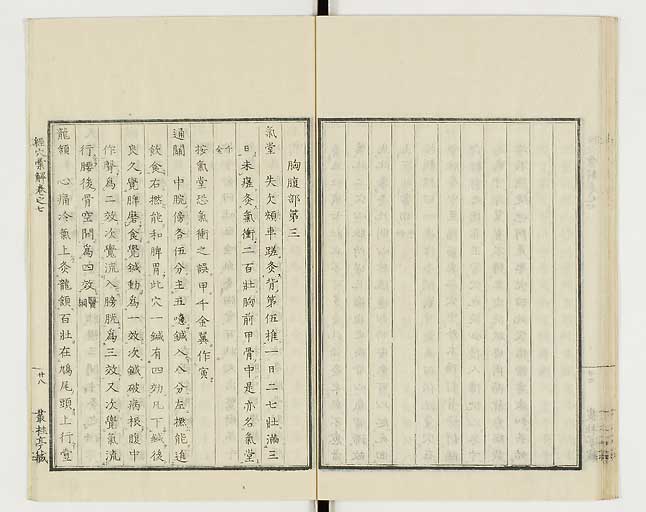 胸腹部第三
氣堂　失欠頰車蹉灸背第伍推一日二七壯滿三
日未瘥灸氣衝二百壯胸前甲骨中是亦名氣堂
千金
按氣堂恐氣衝之誤甲千金翼作寅
通關　中腕傍各伍分主五噎鍼入八分左撚能進
飲食右撚能和脾胃此穴一鍼有四効凡下鍼後
良久覺脾磨食覺鍼動爲一效次鍼破病根腹中
作聲爲二效次覺流入膀胱爲三效又次覺氣流
行腰後骨空間爲四效醫綱
龍頷　心痛冷氣上灸龍頷百壯在鳩尾頭上行壹
經穴彙解卷之七
廿八
叢桂亭藏